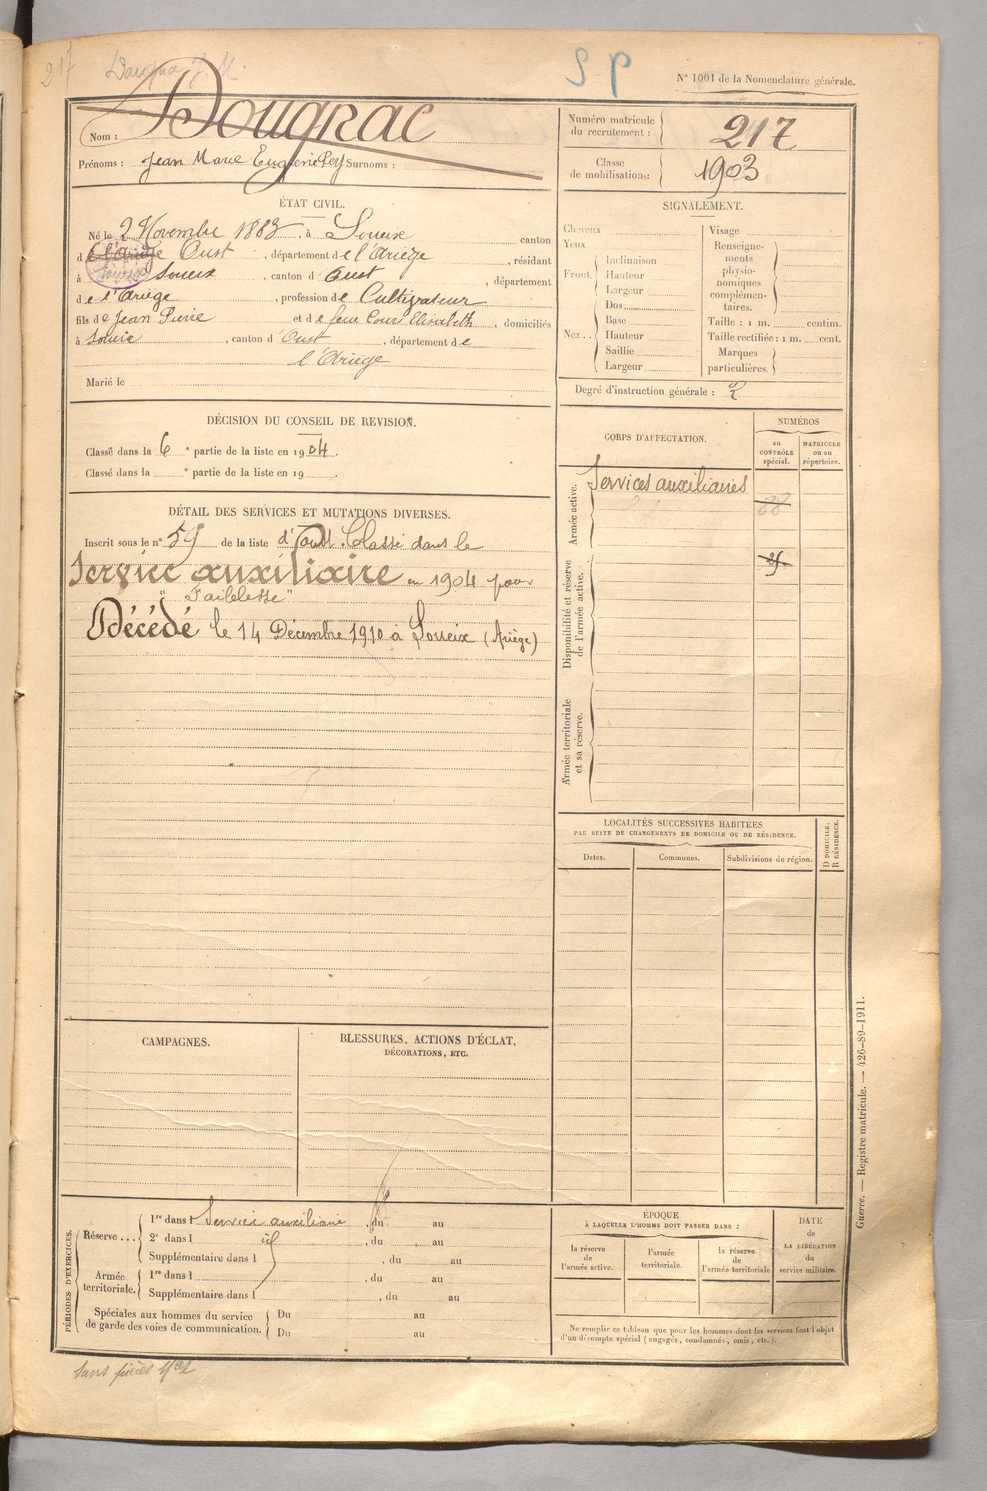 217
N° 1001 de la Nomenclature générale.
Nom : Dougnac
Prénoms : Jean Marie Eugène Surnoms :
Numéro matricule du recrutement : 217
Classe de mobilisation : 1903
ÉTAT CIVIL.
Né le 2 Novembre 1883, à Soueix canton
d Oust, département de l'Ariège, résidant
à Soueix, canton d'Oust, département
de l'Ariège, profession de Cultivateur
fils de Jean Pierre et de feue Elisabeth, domiciliés
à Soueix, canton d'Oust, département de
l'Ariège
Marié le
SIGNALEMENT.
Cheveux
Yeux
Front.
Inclinaison
Hauteur
Largeur
Nez..
Dos
Base
Hauteur
Saillie
Largeur
Visage
Renseignements physionomiques complémentaires.
Taille : 1 m. centim.
Taille rectifiée : 1 m. cent.
Marques particulières.
Degré d'instruction générale : 2
DÉCISION DU CONSEIL DE REVISION.
Classé dans la 6e partie de la liste en 1904.
Classé dans la e partie de la liste en 19 .
DÉTAIL DES SERVICES ET MUTATIONS DIVERSES.
Inscrit sous le n° 55 de la liste d'Oust. Classé dans le
Service auxiliaire en 1904 pour
"Faiblesse"
Décédé le 14 Décembre 1910 à Soueix (Ariège)
CORPS D'AFFECTATION.
NUMÉROS
au CONTRÔLE spécial.
MATRICULE ou au répertoire.
Armée active.
Services auxiliaires
88
Disponibilité et réserve de l'armée active.
Armée territoriale et sa réserve.
LOCALITÉS SUCCESSIVES HABITÉES
PAR SUITE DE CHANGEMENTS DE DOMICILE OU DE RÉSIDENCE.
Dates.
Communes.
Subdivisions de région.
D DOMICILE.
R RÉSIDENCE.
CAMPAGNES.
BLESSURES, ACTIONS D'ÉCLAT,
DÉCORATIONS, ETC.
PÉRIODES D'EXERCICES.
Réserve ...
1re dans l Service auxiliaire, du au
2e dans l , du au
Supplémentaire dans l , du au
Armée territoriale.
1re dans l , du au
Supplémentaire dans l , du au
Spéciales aux hommes du service
de garde des voies de communication.
Du au
Du au
ÉPOQUE
À LAQUELLE L'HOMME DOIT PASSER DANS :
la réserve de l'armée active.
l'armée territoriale.
la réserve de l'armée territoriale
DATE de LA LIBÉRATION du service militaire.
Ne remplir ce tableau que pour les hommes dont les services font l'objet
d'un décompte spécial (engagés, condamnés, omis, etc.).
Guerre. — Registre matricule. — 426-89-1911.
sans pièces